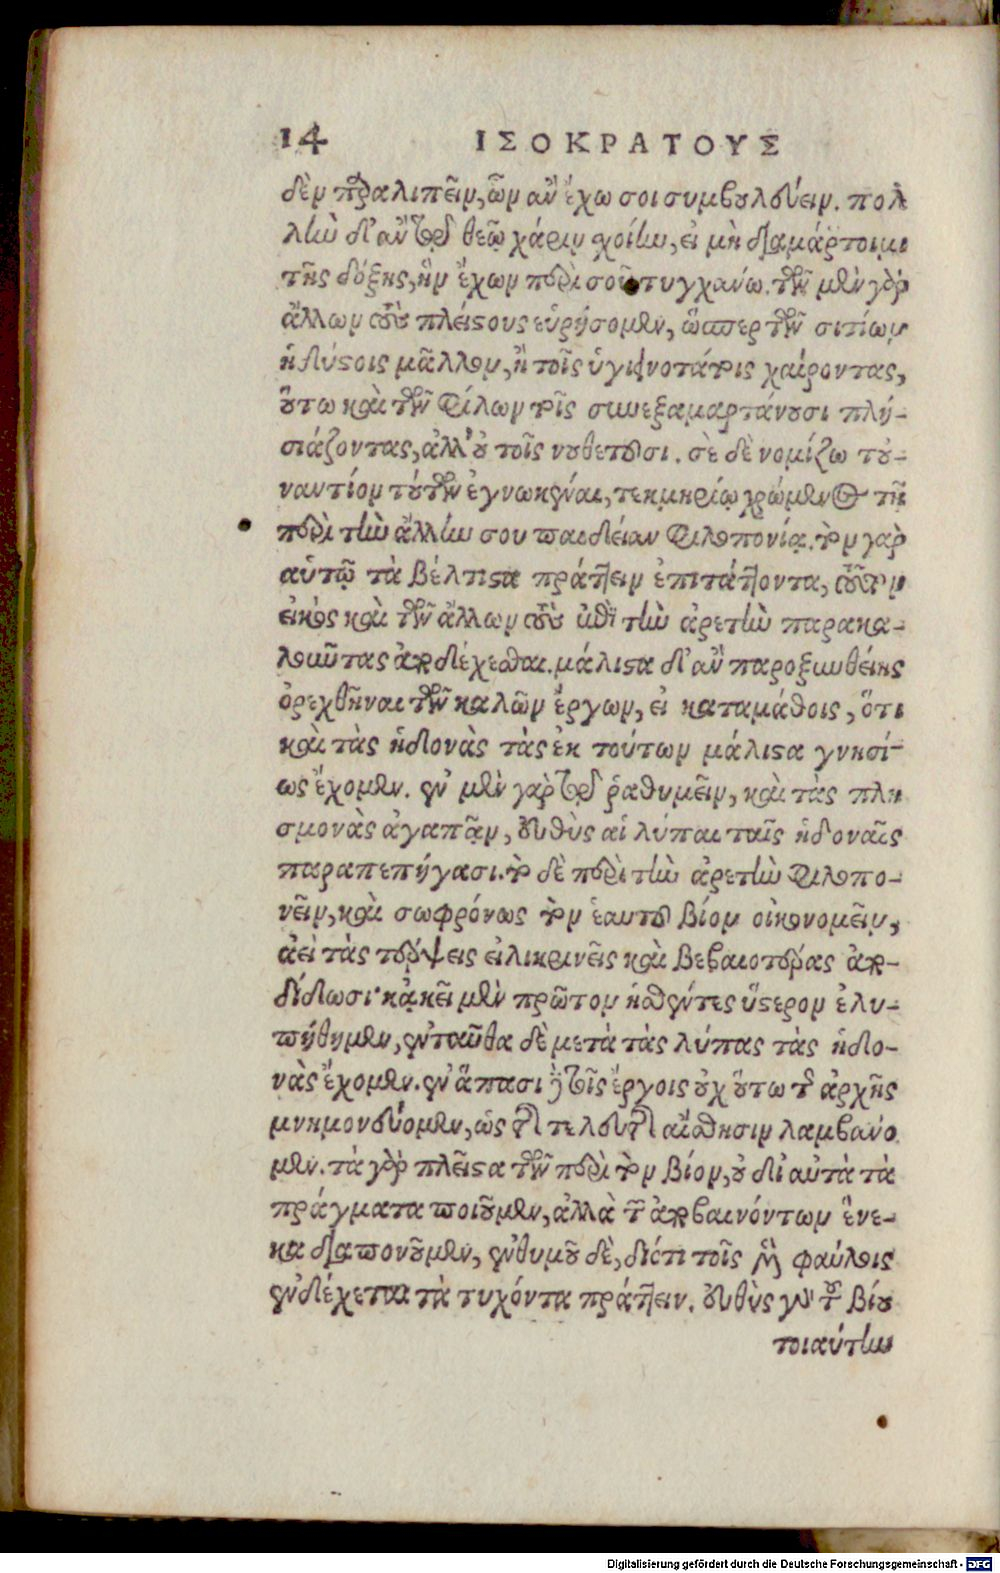 14 ΙΣΟΚΡΑΤΟΥΣ
δὲν παραλιπεῖν, ὧν ἂν ἔχω σοι συμβουλεύειν. πολ
λὴν δ' ἂν τοῖς θεοῖς χάριν σχοίην, εἰ μὴ διαμάρτοιμι
τῆς δόξης, ἣν ἔχων περὶ σοῦ τυγχάνω. τῶν μὲν γὰρ
ἄλλων τοὺς πλείστους εὑρήσομεν, ὥσπερ τῶν σιτίων
ἡδίστοις μᾶλλον, ἢ τοῖς ὑγιεινοτάτοις χαίροντας,
οὕτω καὶ τῶν φίλων τοῖς συνεξαμαρτάνουσι πλη-
σιάζοντας, ἀλλ' οὐ τοῖς νουθετοῦσι. σὲ δὲ νομίζω τοὐ-
ναντίον τούτων ἐγνωκέναι, τεκμηρίῳ χρώμενος τῇ
περὶ τὴν ἄλλην σου παιδείαν φιλοπονίᾳ. τὸν γὰρ
αὑτῷ τὰ βέλτιστα πράττειν ἐπιτάττοντα, τοῦτον
εἰκὸς καὶ τῶν ἄλλων τοὺς ἐπὶ τὴν ἀρετὴν παρακα-
λοῦντας ἀποδέχεσθαι. μάλιστα δ' ἂν παροξυνθείης
ὀρεχθῆναι τῶν καλῶν ἔργων, εἰ καταμάθοις, ὅτι
καὶ τὰς ἡδονὰς τὰς ἐκ τούτων μάλιστα γνησί-
ως ἔχομεν. ἐν μὲν γὰρ τῷ ῥαθυμεῖν, καὶ τὰς πλη
σμονὰς ἀγαπᾷν, εὐθὺς αἱ λύπαι ταῖς ἡδοναῖς
παραπεπήγασι. τὸ δὲ περὶ τὴν ἀρετὴν φιλοπο-
νεῖν, καὶ σωφρόνως τὸν ἑαυτοῦ βίον οἰκονομεῖν,
ἀεὶ τὰς τέρψεις εἰλικρινεῖς καὶ βεβαιοτέρας ἀπο-
δίδωσι· κἀκεῖ μὲν πρῶτον ἡσθέντες ὕστερον ἐλυ-
πήθημεν, ἐνταῦθα δὲ μετὰ τὰς λύπας τὰς ἡδο-
νὰς ἔχομεν. ἐν ἅπασι δὲ τοῖς ἔργοις οὐχ οὕτω τῆς ἀρχῆς
μνημονεύομεν, ὡς τῆς τελευτῆς αἴσθησιν λαμβάνο
μεν. τὰ γὰρ πλεῖστα τῶν περὶ τὸν βίον, οὐ δι' αὐτὰ τὰ
πράγματα ποιοῦμεν, ἀλλὰ τῶν ἀποβαινόντων ἕνε-
κα διαπονοῦμεν, ἐνθυμοῦ δὲ, διότι τοῖς μὲν φαύλοις
ἐνδέχεται τὰ τυχόντα πράττειν. εὐθὺς γὰρ τοῦ βίου
τοιαύτην
Digitalisierung gefördert durch die Deutsche Forschungsgemeinschaft - DFG